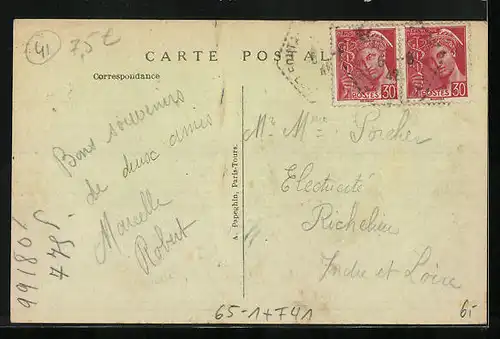 41
7,5€
CARTE POSTALE
Correspondance
POSTES
30
POSTES
30
Bons souvenirs
de deux amies
Marcelle
Robert
A. Papeghin, Paris-Tours.
Mr Mme Porcher
Electricité
Richelieu
Indre et Loire
99180/
65-1+T41
6,-